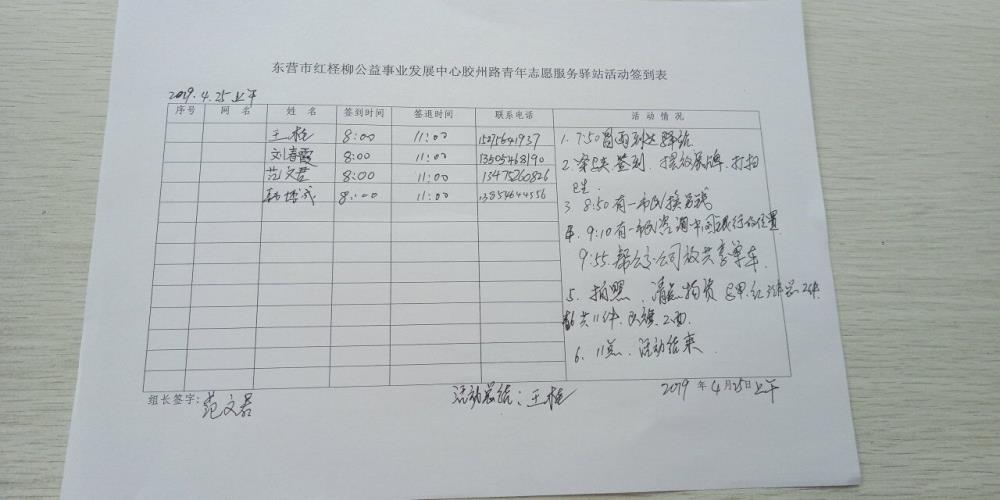 东营市红柽柳公益事业发展中心胶州路青年志愿服务驿站活动签到表
2019.4.25上午
序号 网名 姓名 签到时间 签退时间 联系电话 活动情况
王桂 8:00 11:00 15275641937
刘春霞 8:00 11:00 13505468190
范文君 8:00 11:00 13475260826
韩博成 8:00 11:00 13854644556
1. 7:50冒雨到达驿站
2. 穿马夹.签到.摆放展牌.打扫
卫生.
3. 8:50有一市民换零钱
4. 9:10有一市民咨询中国银行的位置
9:55.帮公交公司放共享单车.
5. 拍照.清点物资
共11件.队旗.2面.
6. 11点.活动结束
组长签字:范文君
活动总结:王桂
2019年4月25日上午